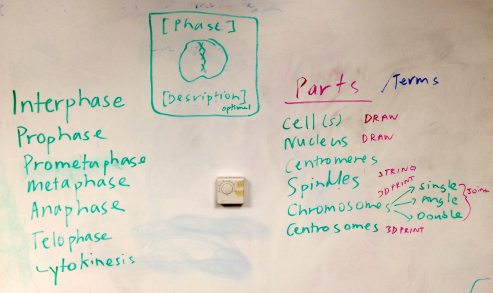 [Phase]
[Desription]
optional
Interphase
Prophase
Prometaphase
metaphase
Anaphase
Telophase
Cytokinesis
Parts /Terms
Cell(s) DRAW
Nucleus DRAW
Centromeres
Spindles STRING
3D PRINT
Chromosomes
Single
Angle
Double
Centrosomes 3D PRINT